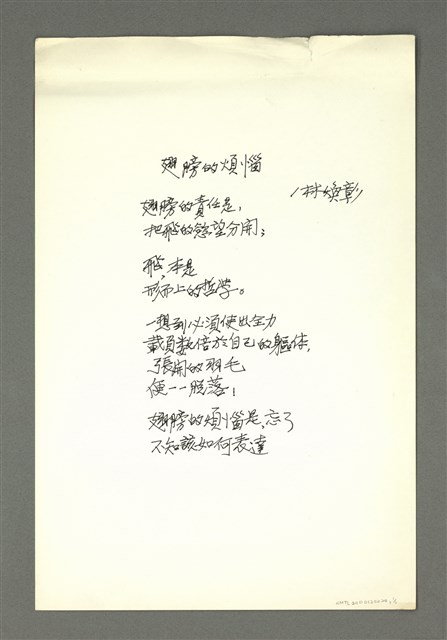 翅膀的煩惱
／林煥彰
翅膀的責任是，
把飛的慾望分開；
飛，本是
形而上的哲学。
一想到必須使出全力
載負數倍於自己的軀体，
張開的羽毛
便一一脫落！
翅膀的煩惱是，忘了
不知該如何表達